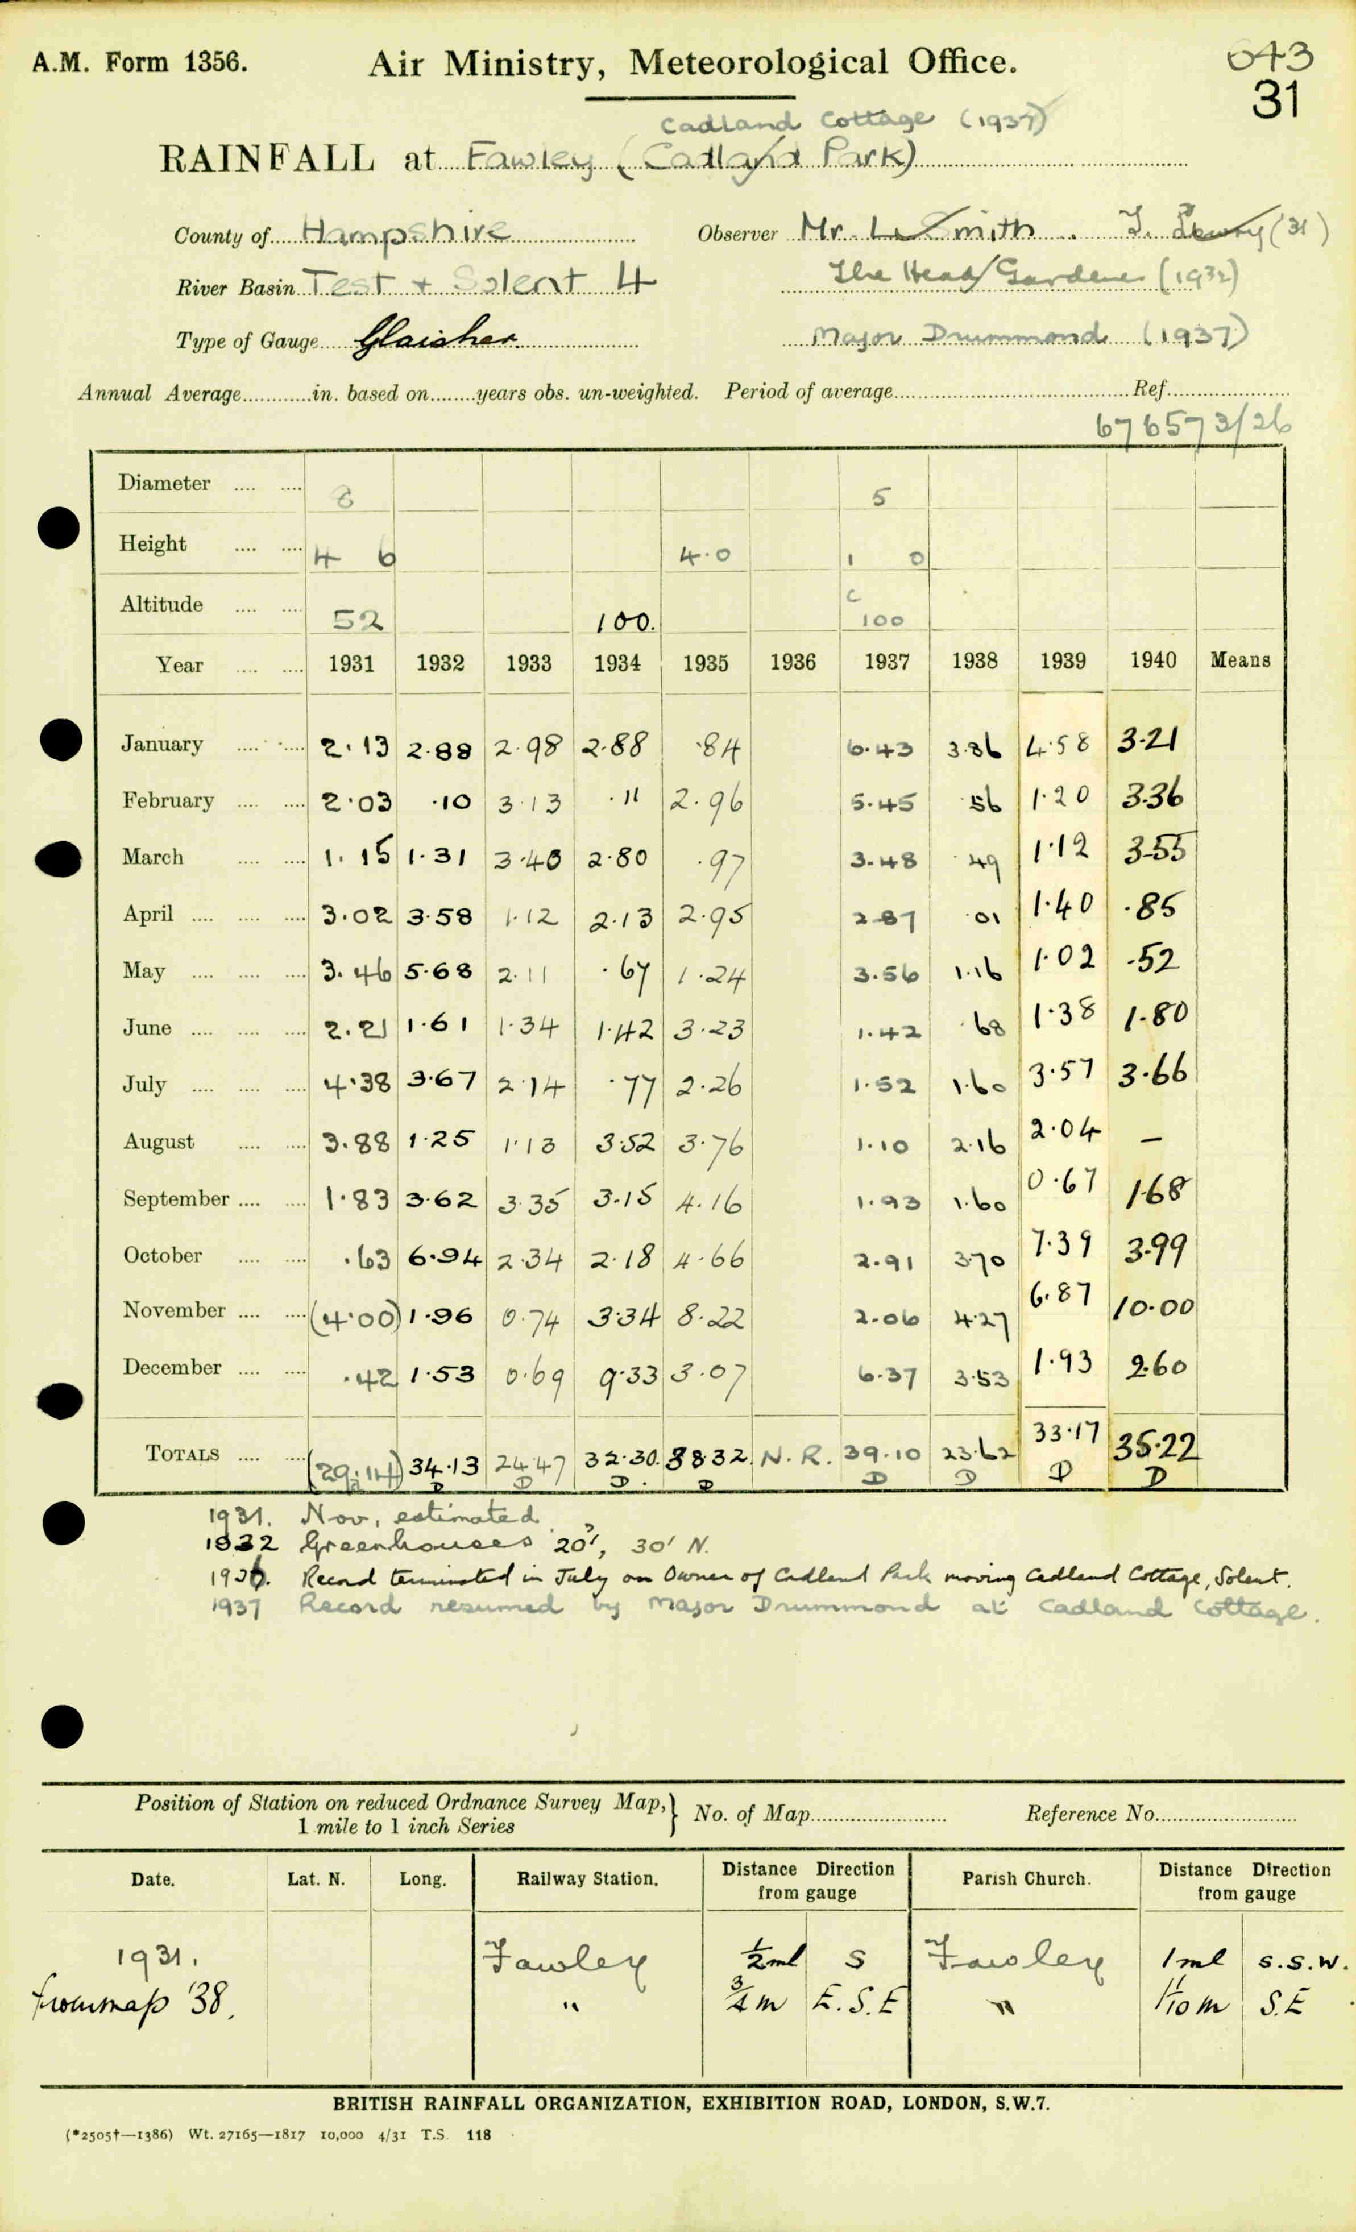 A.M. Form 1356. Air Ministry, Meteorological Office. 643
31
Cadland Cottage (1937)
RAINFALL at Fawley (Cadland Park)
County of Hampshire Observer Mr. L. Smith (31)
River Basin Test + Solent 4 The Head Gardener (1932)
Type of Gauge Glaisher Major Drummond (1937)
Annual Average in. based on years obs. un-weighted. Period of average Ref.
676573/26
Diameter 8 5
Height 4 6 4.0 1 0
Altitude 52 100. C 100
Year 1931 1932 1933 1934 1935 1936 1937 1938 1939 1940 Means
January 2.13 2.88 2.98 2.88 .84 6.43 3.86 4.58 3.21
February 2.03 .10 3.13 .11 2.96 5.45 .56 1.20 3.36
March 1.15 1.31 3.40 2.80 .97 3.48 .49 1.12 3.55
April 3.02 3.58 1.12 2.13 2.95 2.87 .01 1.40 .85
May 3.46 5.68 2.11 .67 1.24 3.56 1.16 1.02 .52
June 2.21 1.61 1.34 1.42 3.23 1.42 .68 1.38 1.80
July 4.38 3.67 2.14 .77 2.26 1.52 1.60 3.57 3.66
August 3.88 1.25 1.13 3.52 3.76 1.10 2.16 2.04 —
September 1.83 3.62 3.35 3.15 4.16 1.93 1.60 0.67 1.68
October .63 6.94 2.34 2.18 4.66 2.91 3.70 7.39 3.99
November (4.00) 1.96 0.74 3.34 8.22 2.06 4.27 6.87 10.00
December .42 1.53 0.69 9.33 3.07 6.37 3.53 1.93 2.60
TOTALS (29.14) 34.13 24.47 32.30 38.32 N.R. 39.10 23.62 33.17 35.22
D D D D D D D D
1931. Nov, estimated
1932 Greenhouses 20', 30' N.
1936. Record terminated in July on Owner of Cadland Park moving Cadland Cottage, Solent.
1937 Record resumed by Major Drummond at Cadland Cottage.
Position of Station on reduced Ordnance Survey Map, 1 mile to 1 inch Series } No. of Map Reference No.
Date. Lat. N. Long. Railway Station. Distance Direction from gauge Parish Church. Distance Direction from gauge
1931. Fawley ½ ml S Fawley 1 ml S.S.W.
from map '38. " ¾ m E.S.E " 1 1/10 m S.E
BRITISH RAINFALL ORGANIZATION, EXHIBITION ROAD, LONDON, S.W.7.
(*2505†—1386) Wt. 27165—1817 10,000 4/31 T.S. 118